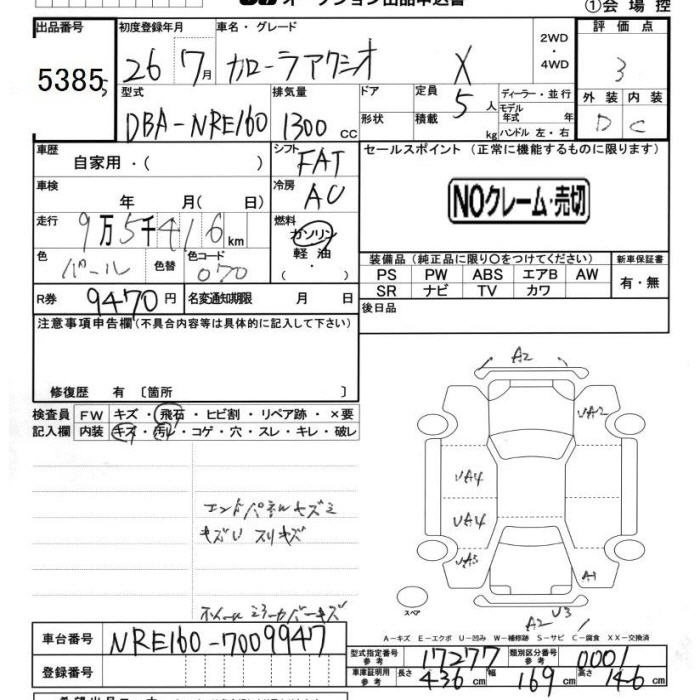 オークション出品申込書
①会場控
出品番号 初度登録年月 車名・グレード 評価点
5385 26 7月 カローラアクシオ X 2WD・4WD 3
型式 排気量 ドア 定員 ディーラー・並行 外装 内装
DBA-NRE160 1300cc 5人 モデル年式 年 D C
形状 積載 kg ハンドル 左・右
車歴 シフト セールスポイント (正常に機能するものに限ります)
自家用・( ) FAT
車検 年 月( 日) 冷房 AC
NOクレーム・売切
走行 9万5千416km 燃料 ガソリン 軽油 ・( )
色 パール 色替 色コード 070
装備品 (純正品に限り○をつけてください) 新車保証書
PS PW ABS エアB AW 有・無
SR ナビ TV カワ
R券 9470円 名変通知期限 月 日 後日品
注意事項申告欄(不具合内容等は具体的に記入して下さい)
修復歴 有 〔箇所 〕
検査員 FW キズ・飛石・ヒビ割・リペア跡・×要
記入欄 内装 キズ・汚レ・コゲ・穴・スレ・キレ・破レ
A2
UA2
UA4
UA4
UA3
A1
A2 U3
スペア
エンドパネルキズミ
キズU スリキズ
ホイールミラーカバーキズ
A-キズ E-エクボ U-凹み W-補修跡 S-サビ C-腐食 XX-交換済
車台番号 NRE160-7009947
型式指定番号 参考 17277 類別区分番号 参考 0001
登録番号
車庫証明用 参考 長さ 436cm 幅 169cm 高さ 146cm